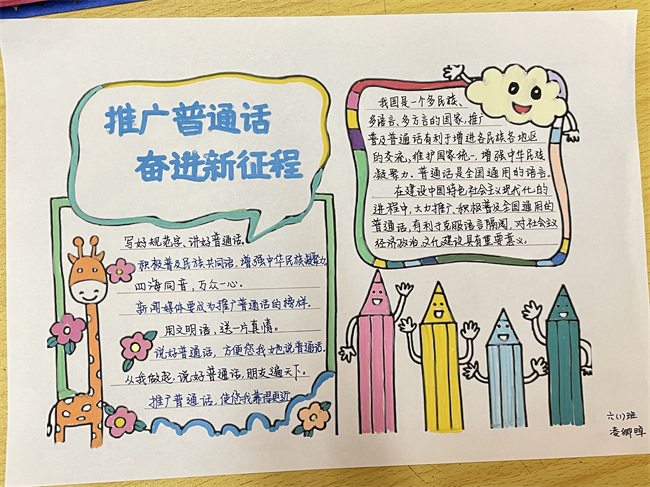 推广普通话
奋进新征程
写好规范字，讲好普通话。
积极普及民族共同语，增强中华民族凝聚力。
四海同音，万众一心。
新闻媒体要成为推广普通话的榜样。
用文明语，送一片真情。
说好普通话，方便您我她说普通话。
从我做起，说好普通话，朋友遍天下。
推广普通话，使您我靠得更近
我国是一个多民族、
多语言、多方言的国家，推广
普及普通话有利于增进各民族各地区
的交流，维护国家统一，增强中华民族
凝聚力。普通话是全国通用的语言。
在建设中国特色社会主义现代化的
进程中，大力推广、积极普及全国通用的
普通话，有利于克服语言隔阂，对社会主义
经济政治文化建设具有重要意义。
六(1)班
凌卿